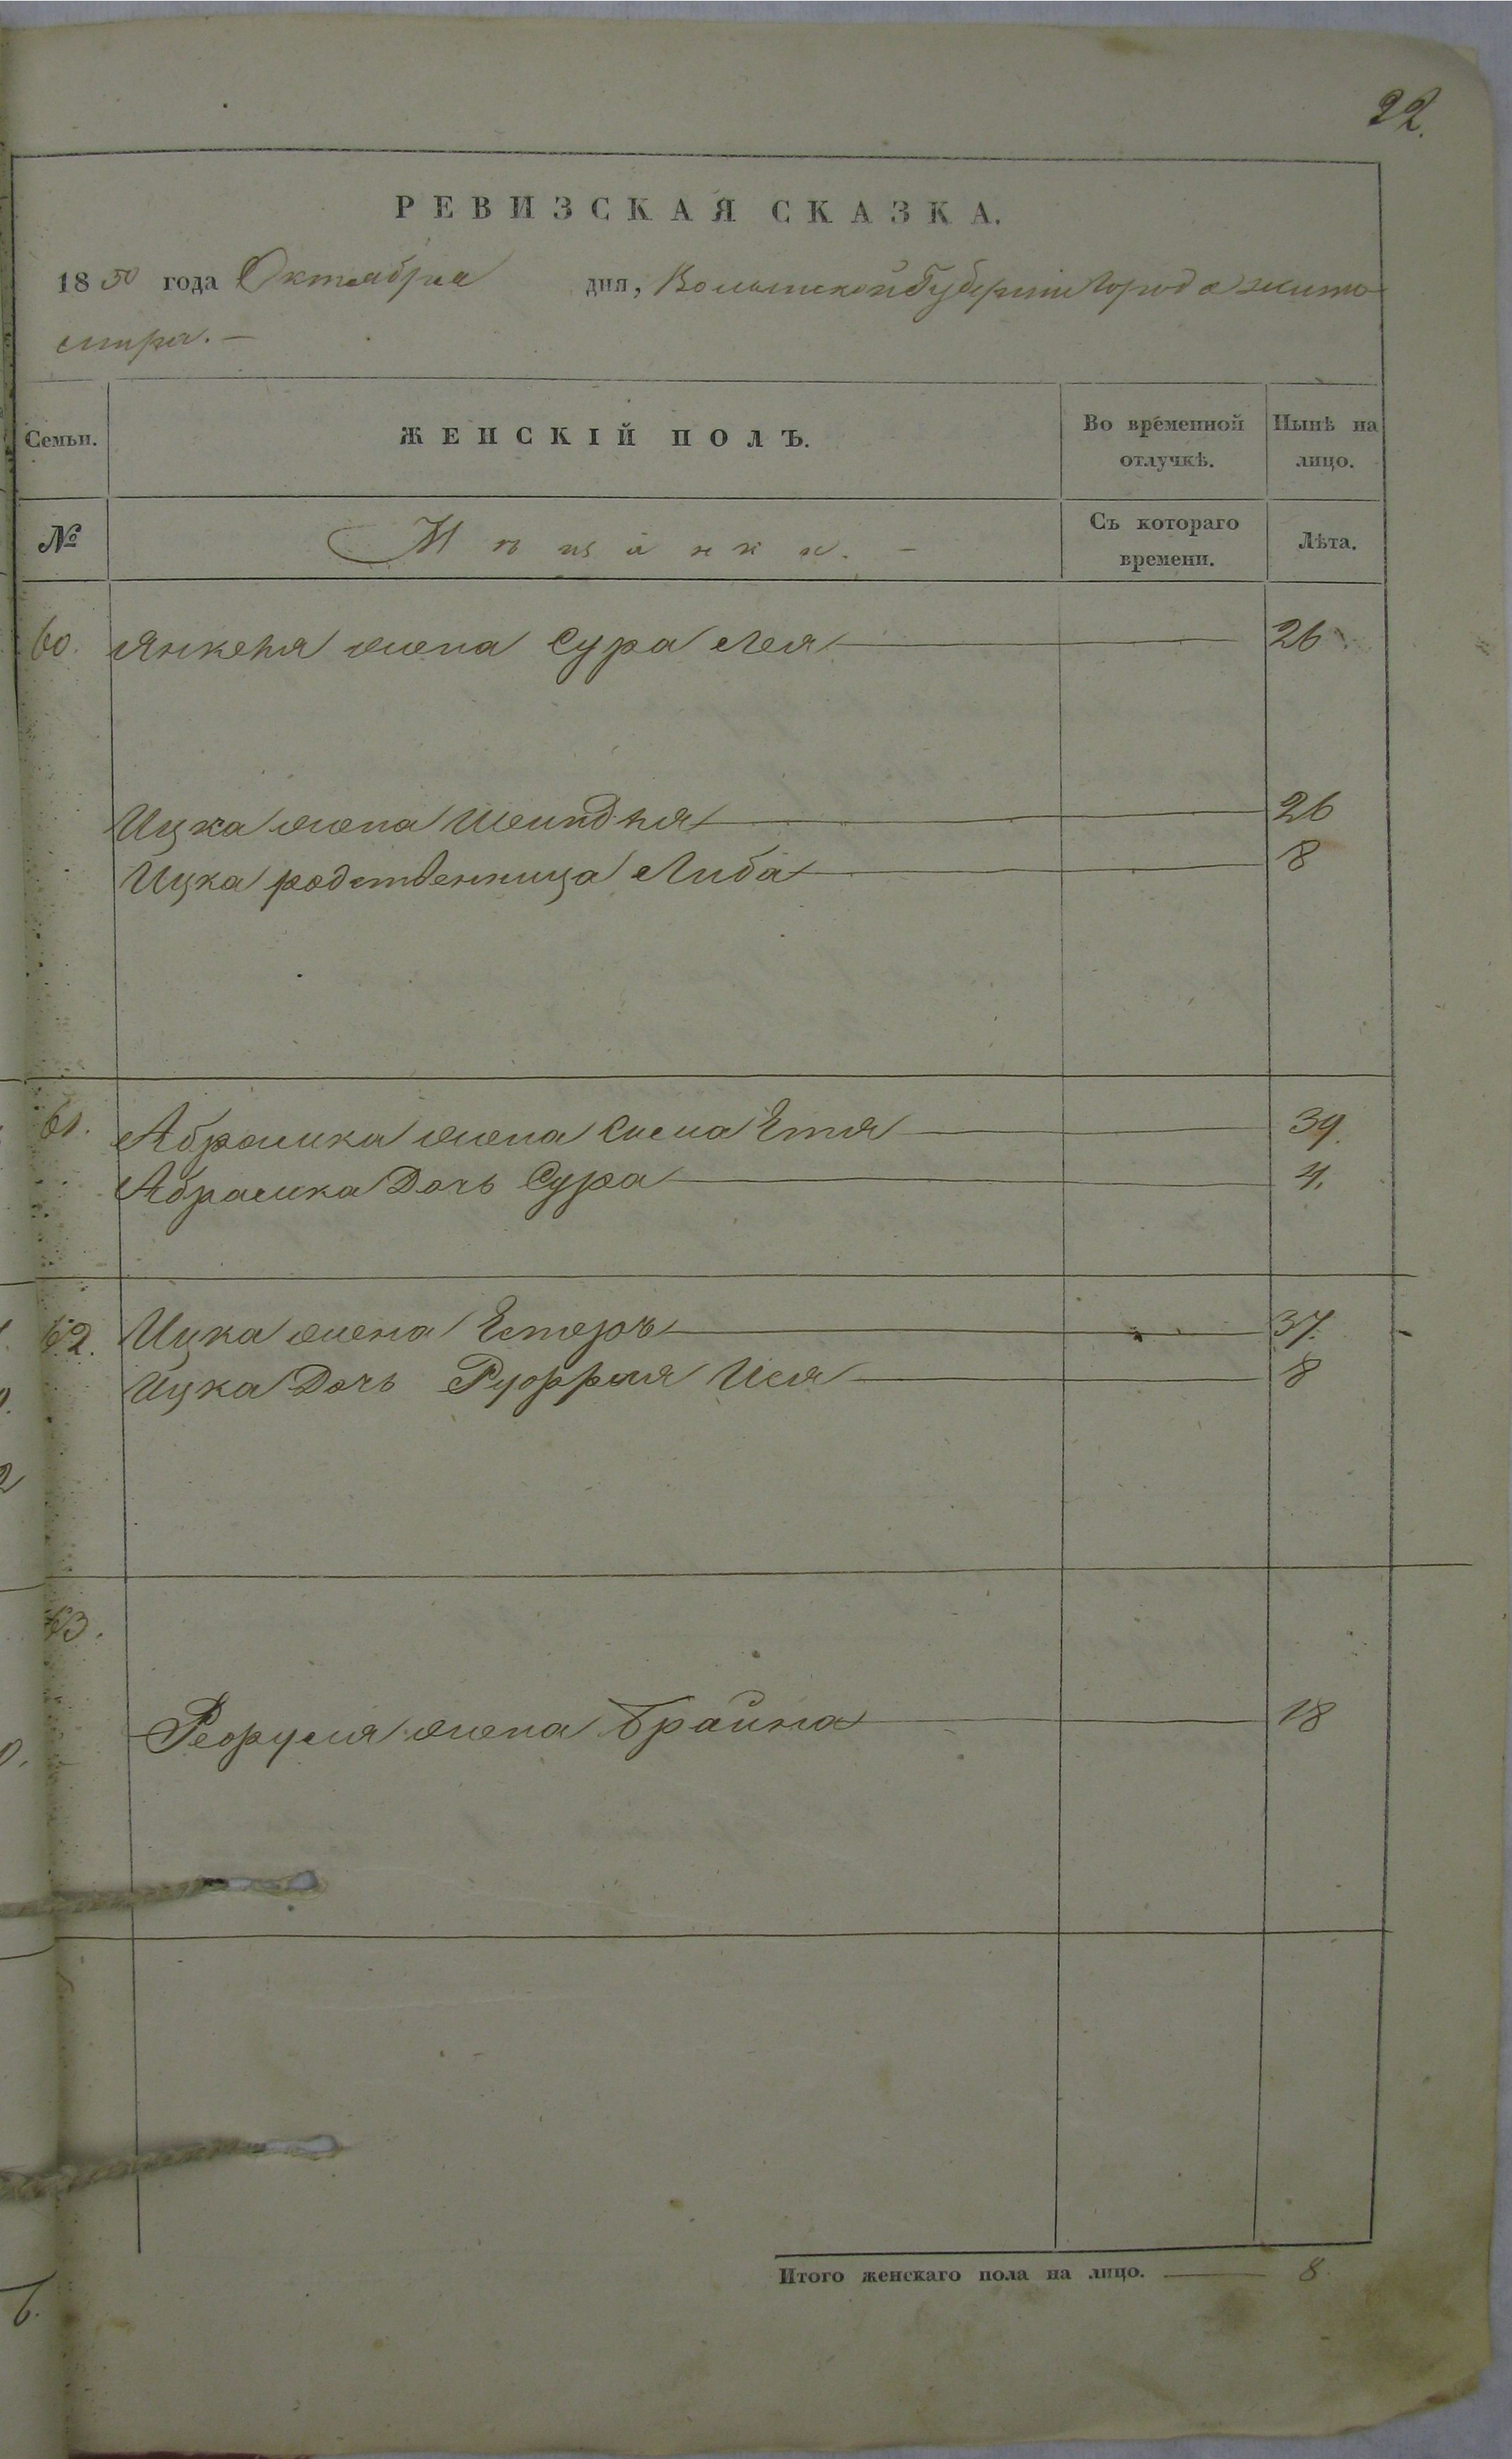 22.
РЕВИЗСКАЯ СКАЗКА.
1850 года Октября дня, Волынской Губерніи Города Жито
мира. —
Семьи.
ЖЕНСКІЙ ПОЛЪ.
Во временной отлучкѣ.
Нынѣ на лицо.
№
Мѣщанки. —
Съ котораго времени.
Лѣта.
60. Янкеля жена Сура Лея 26
Ицка жена Шейндля 26
Ицка родственница Либа 8
61. Абрамка жена Сима Етя 39.
Абрамка Дочь Сура 4.
62. Ицка жена Естеръ 37.
Ицка Дочь 8
63.
жена Брайна 18
Итого женскаго пола на лицо. — 8